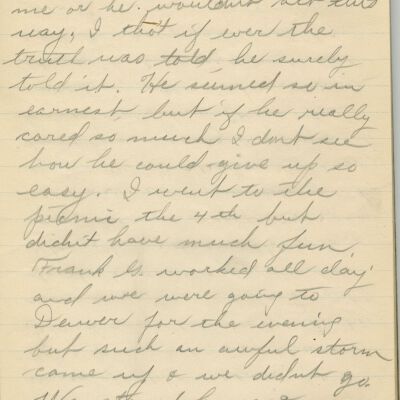 me or he wouldn't act this
way, I thot if ever the
truth was told, he surely
told it. He seemed so in
earnest, but if he really
cared so much I dont see
how he could give up so
easy. I went to the
picnic the 4th but
didn't have much fun
Frank G. worked all day
and we were going to
Denver for the evening
but such an awful storm
came up & we didnt go.